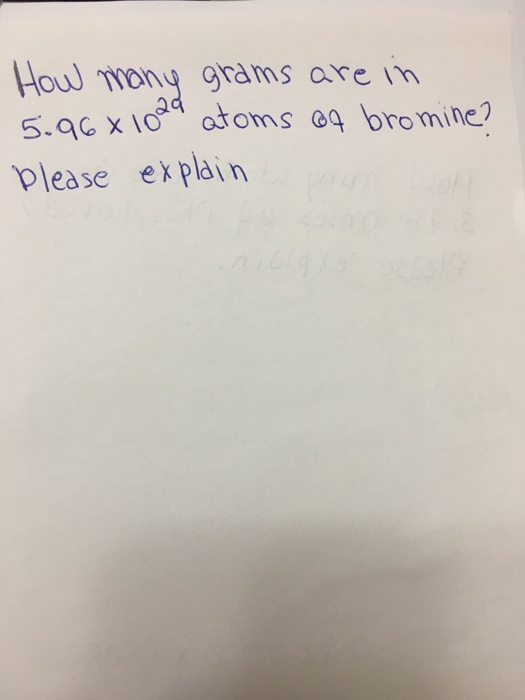 How many grams are in
5.96 x 10²⁹ atoms of bromine?
please explain